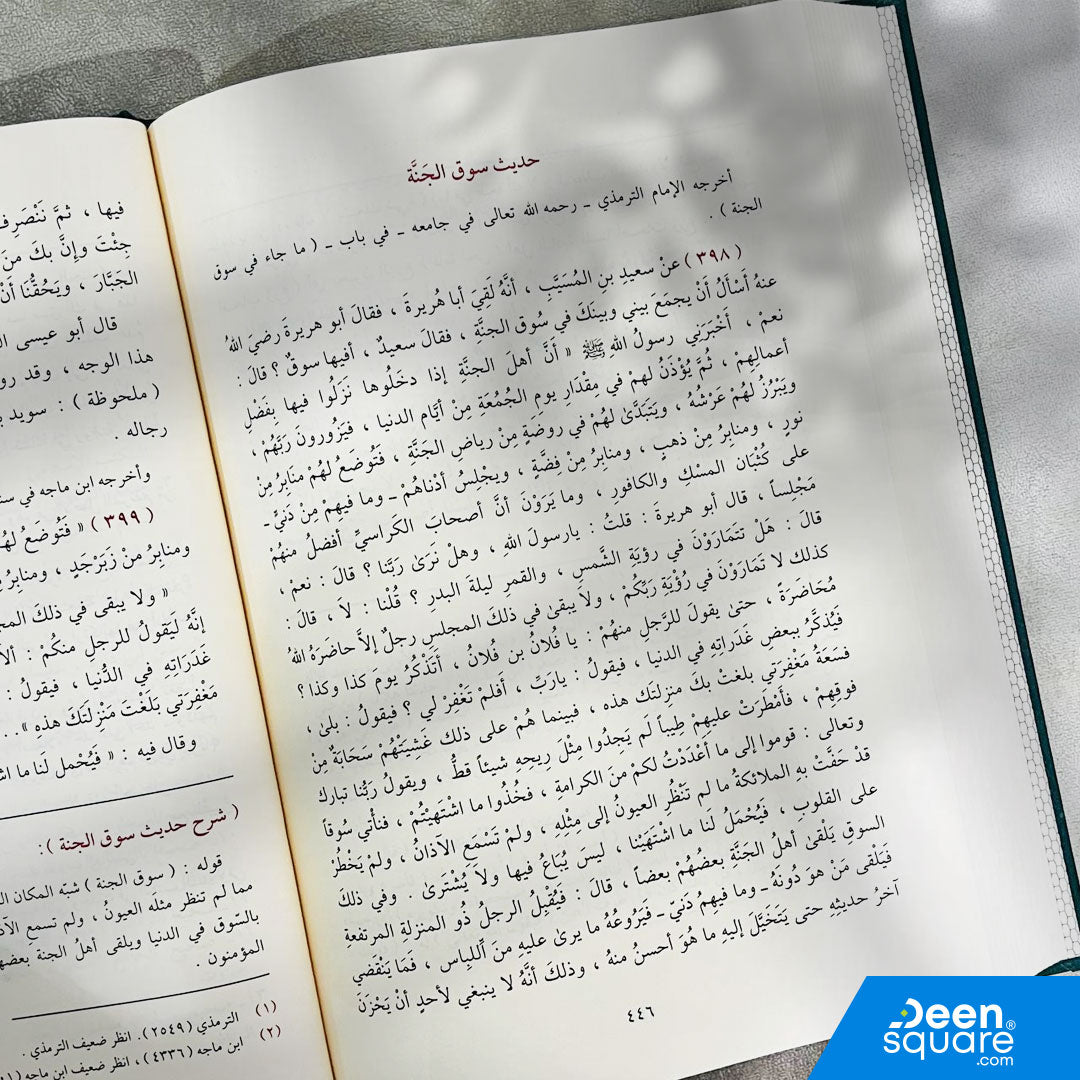 حديث سوق الجَنَّة
أخرجه الإمام الترمذي ـ رحمه الله تعالى في جامعه ـ في باب ـ ( ما جاء في سوق
الجنة ) .
( ٣٩٨ ) عنْ سعيدِ بنِ المُسَيَّبِ ، أنَّهُ لَقِيَ أبا هُريرةَ ، فقالَ أبو هريرةَ رضيَ اللهُ
عنهُ أسْأَلُ أنْ يجمَعَ بيني وبينَكَ في سُوقِ الجنَّةِ ، فقالَ سعيدٌ ، أفيها سوقٌ ؟ قالَ :
نعمْ ، أخْبَرَنِي رسولُ اللهِ ﷺ « أنَّ أهلَ الجنَّةِ إذا دخَلُوها نَزَلُوا فيها بِفَضْلِ
أعمالِهِمْ ، ثُمَّ يُؤْذَنُ لهمْ في مِقْدَارِ يومِ الجُمُعَةِ مِنْ أيَّامِ الدنيا ، فيَزُورونَ رَبَّهُمْ ،
ويَبْرُزُ لَهُمْ عَرْشُهُ ، ويَتَبَدَّىٰ لهُمْ في روضَةٍ مِنْ رياضِ الجَنَّةِ ، فَتُوضَعُ لهُمْ مَنَابِرُ مِنْ
نورٍ ، ومنابِرُ مِنْ ذهبٍ ، ومنابِرُ مِنْ فِضَّةٍ ، ويجْلِسُ أدْناهُمْ ـ وما فيهِمْ مِنْ دَنيٍّ ـ
على كُثْبَانِ المسْكِ والكافورِ ، وما يَرَوْنَ أنَّ أصحابَ الكَراسيِّ أفضلُ منهُمْ
مَجْلِساً ، قال أبو هريرةَ : قلتُ : يارسولَ اللهِ ، وهلْ نَرَىٰ رَبَّنا ؟ قالَ : نعمْ ،
قالَ : هَلْ تَتَمَارَوْنَ في رؤيَةِ الشَّمسِ ، والقمرِ ليلةَ البدرِ ؟ قُلْنا : لاَ ، قالَ :
كذلك لا تَمَارَوْنَ في رُؤْيَةِ رَبِّكُمْ ، ولاَ يبقىٰ في ذلكَ المجلسِ رجلٌ إلاَّ حاضَرَهُ اللهُ
مُحَاضَرَةً ، حتىٰ يقولَ للرَّجلِ منهُمْ : يا فُلانُ بن فُلانُ ، أتَذْكُرُ يومَ كذا وكذا ؟
فَيُذَكَّرُ ببعضِ غَدَراتِهِ في الدنيا ، فيقولُ : ياربِّ ، أفلمْ تَغْفِرْ لي ؟ فيقولُ : بلىٰ ،
فسَعَةُ مَغْفِرَتي بلغتْ بكَ منزِلتَكَ هذه ، فبينما هُمْ على ذلك غَشِيَتْهُمْ سَحَابَةٌ مِنْ
فوقِهِمْ ، فأمْطَرَتْ عليهِمْ طِيباً لَم يَجِدُوا مِثْلَ رِيحِهِ شيئاً قطُّ ، ويقولُ رَبُّنا تبارك
وتعالى : قوموا إلى ما أعْدَدْتُ لكمْ منَ الكرامةِ ، فخُذُوا ما اشْتَهَيْتُمْ ، فنأتي سُوقاً
قدْ حَفَّتْ بِهِ الملائكةُ ما لم تَنْظُرِ العيونُ إلى مِثْلِهِ ، ولمْ تَسْمَعِ الآذانُ ، ولمْ يَخْطُرْ
على القلوبِ ، فَيُحْمَلُ لنا ما اشْتَهَيْنا ، ليسَ يُبَاعُ فيها ولاَ يُشْتَرىٰ . وفي ذلكَ
السوقِ يَلْقىٰ أهلُ الجَنَّةِ بعضُهُمْ بعضاً ، قالَ : فَيُقْبِلُ الرجلُ ذُو المنزلةِ المرتفعةِ
فَيَلْقى مَنْ هوَ دُونَهُ ـ وما فيهِمْ دَنيّ ـ فَيَرُوعُهُ ما يرىٰ عليهِ منَ اللِّباسِ ، فَمَا يَنْقَضي
آخرُ حديثِهِ حتى يَتَخَيَّلَ إليهِ ما هُوَ أحسنُ منهُ ، وذلكَ أنَّهُ لا ينبغي لأحدٍ أنْ يَحْزَنَ
٤٤٦
فيها ، ثمَّ نَنْصَرِفُ
جِئْتَ وإنَّ بكَ مِنَ
الجَبَّارَ ، ويَحُقُّنَا أنْ
قال أبو عيسى
هذا الوجه ، وقد
( ملحوظة ) : سويد
رجاله .
وأخرجه ابن ماجه في
( ٣٩٩ ) « فَتُوضَعُ
ومنابِرُ منْ زَبَرْجَدٍ ، ومنابِرُ
« ولا يبقى في ذلكَ
إنَّه لَيَقولُ للرجلِ منكُمْ :
غَدَرَاتِهِ في الدُّنيا ، فيقولُ :
مَغْفِرَتي بَلَغْتَ مَنْزِلَتَكَ هذه » ..
وقال فيه : « فَيُحْمل لَنا ما
( شرح حديث سوق الجنة ) :
قوله : ( سوق الجنة ) شبّه المكان
مما لم تنظر مثله العيونُ ، ولم تسمع
بالسّوق في الدنيا ويلقى أهلُ الجنة
المؤمنون .
(١) الترمذي (٢٥٤٩). انظر ضعيف الترمذي .
(٢) ابن ماجه (٤٣٣٦) ، انظر ضعيف ابن ماجه
Deen®
square
.com